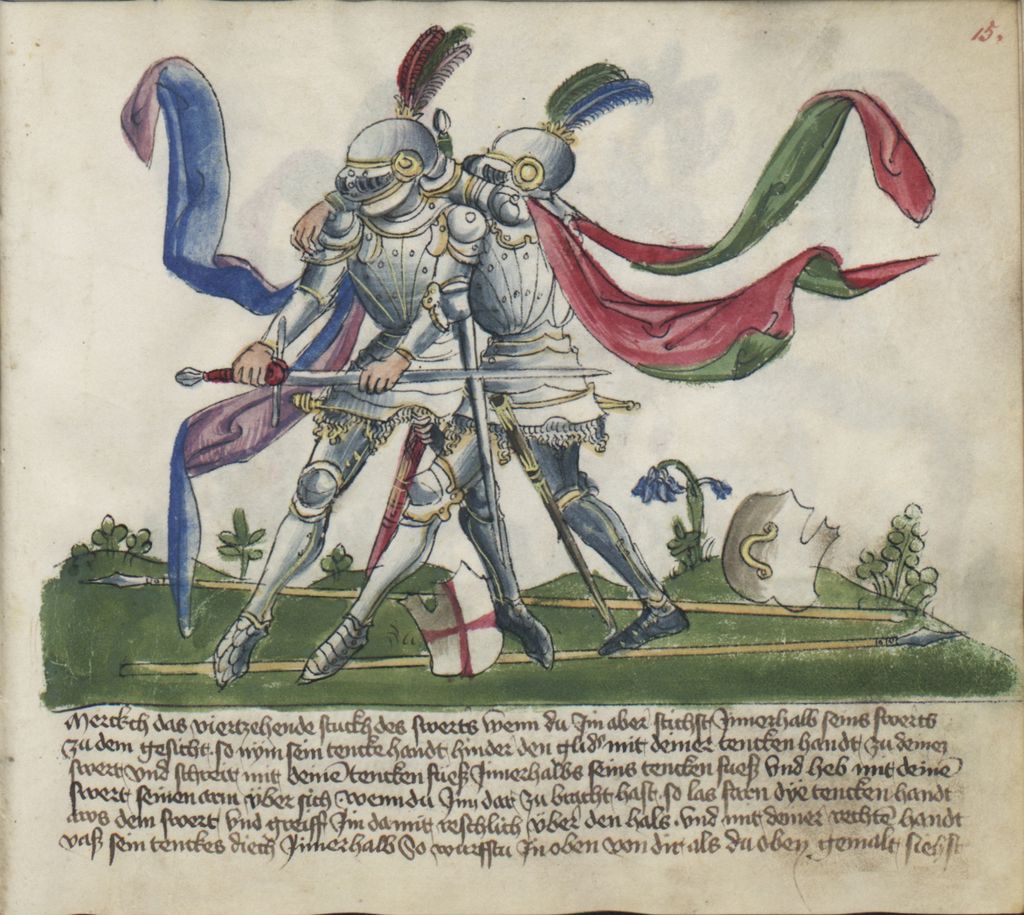 15.
Merckch das viertzehende stuckh des swerts wenn du Im aber stichst Innerhalb seins swerts
zu dem gesicht so nym sein tencke handt hinder den glid mit deiner tencken handt zu deinez
swert vnd schreit mit deinē tencken fueß Innerhalbs seins tencken fueß Vnd heb mit deinē
swert seinen arm vber sich wenn du Im dar zu bracht hast so las farn dye tencken handt
aws dem swert vnd greiff Im damit reschlich vber den hals vnd mit deiner rechtē handt
vaß sein tenckes diech Innerhalb So wurffstu In oben von dir als du oben gemalt siehst